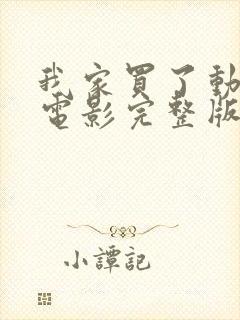 我家買了動
電影完整版
小譚記